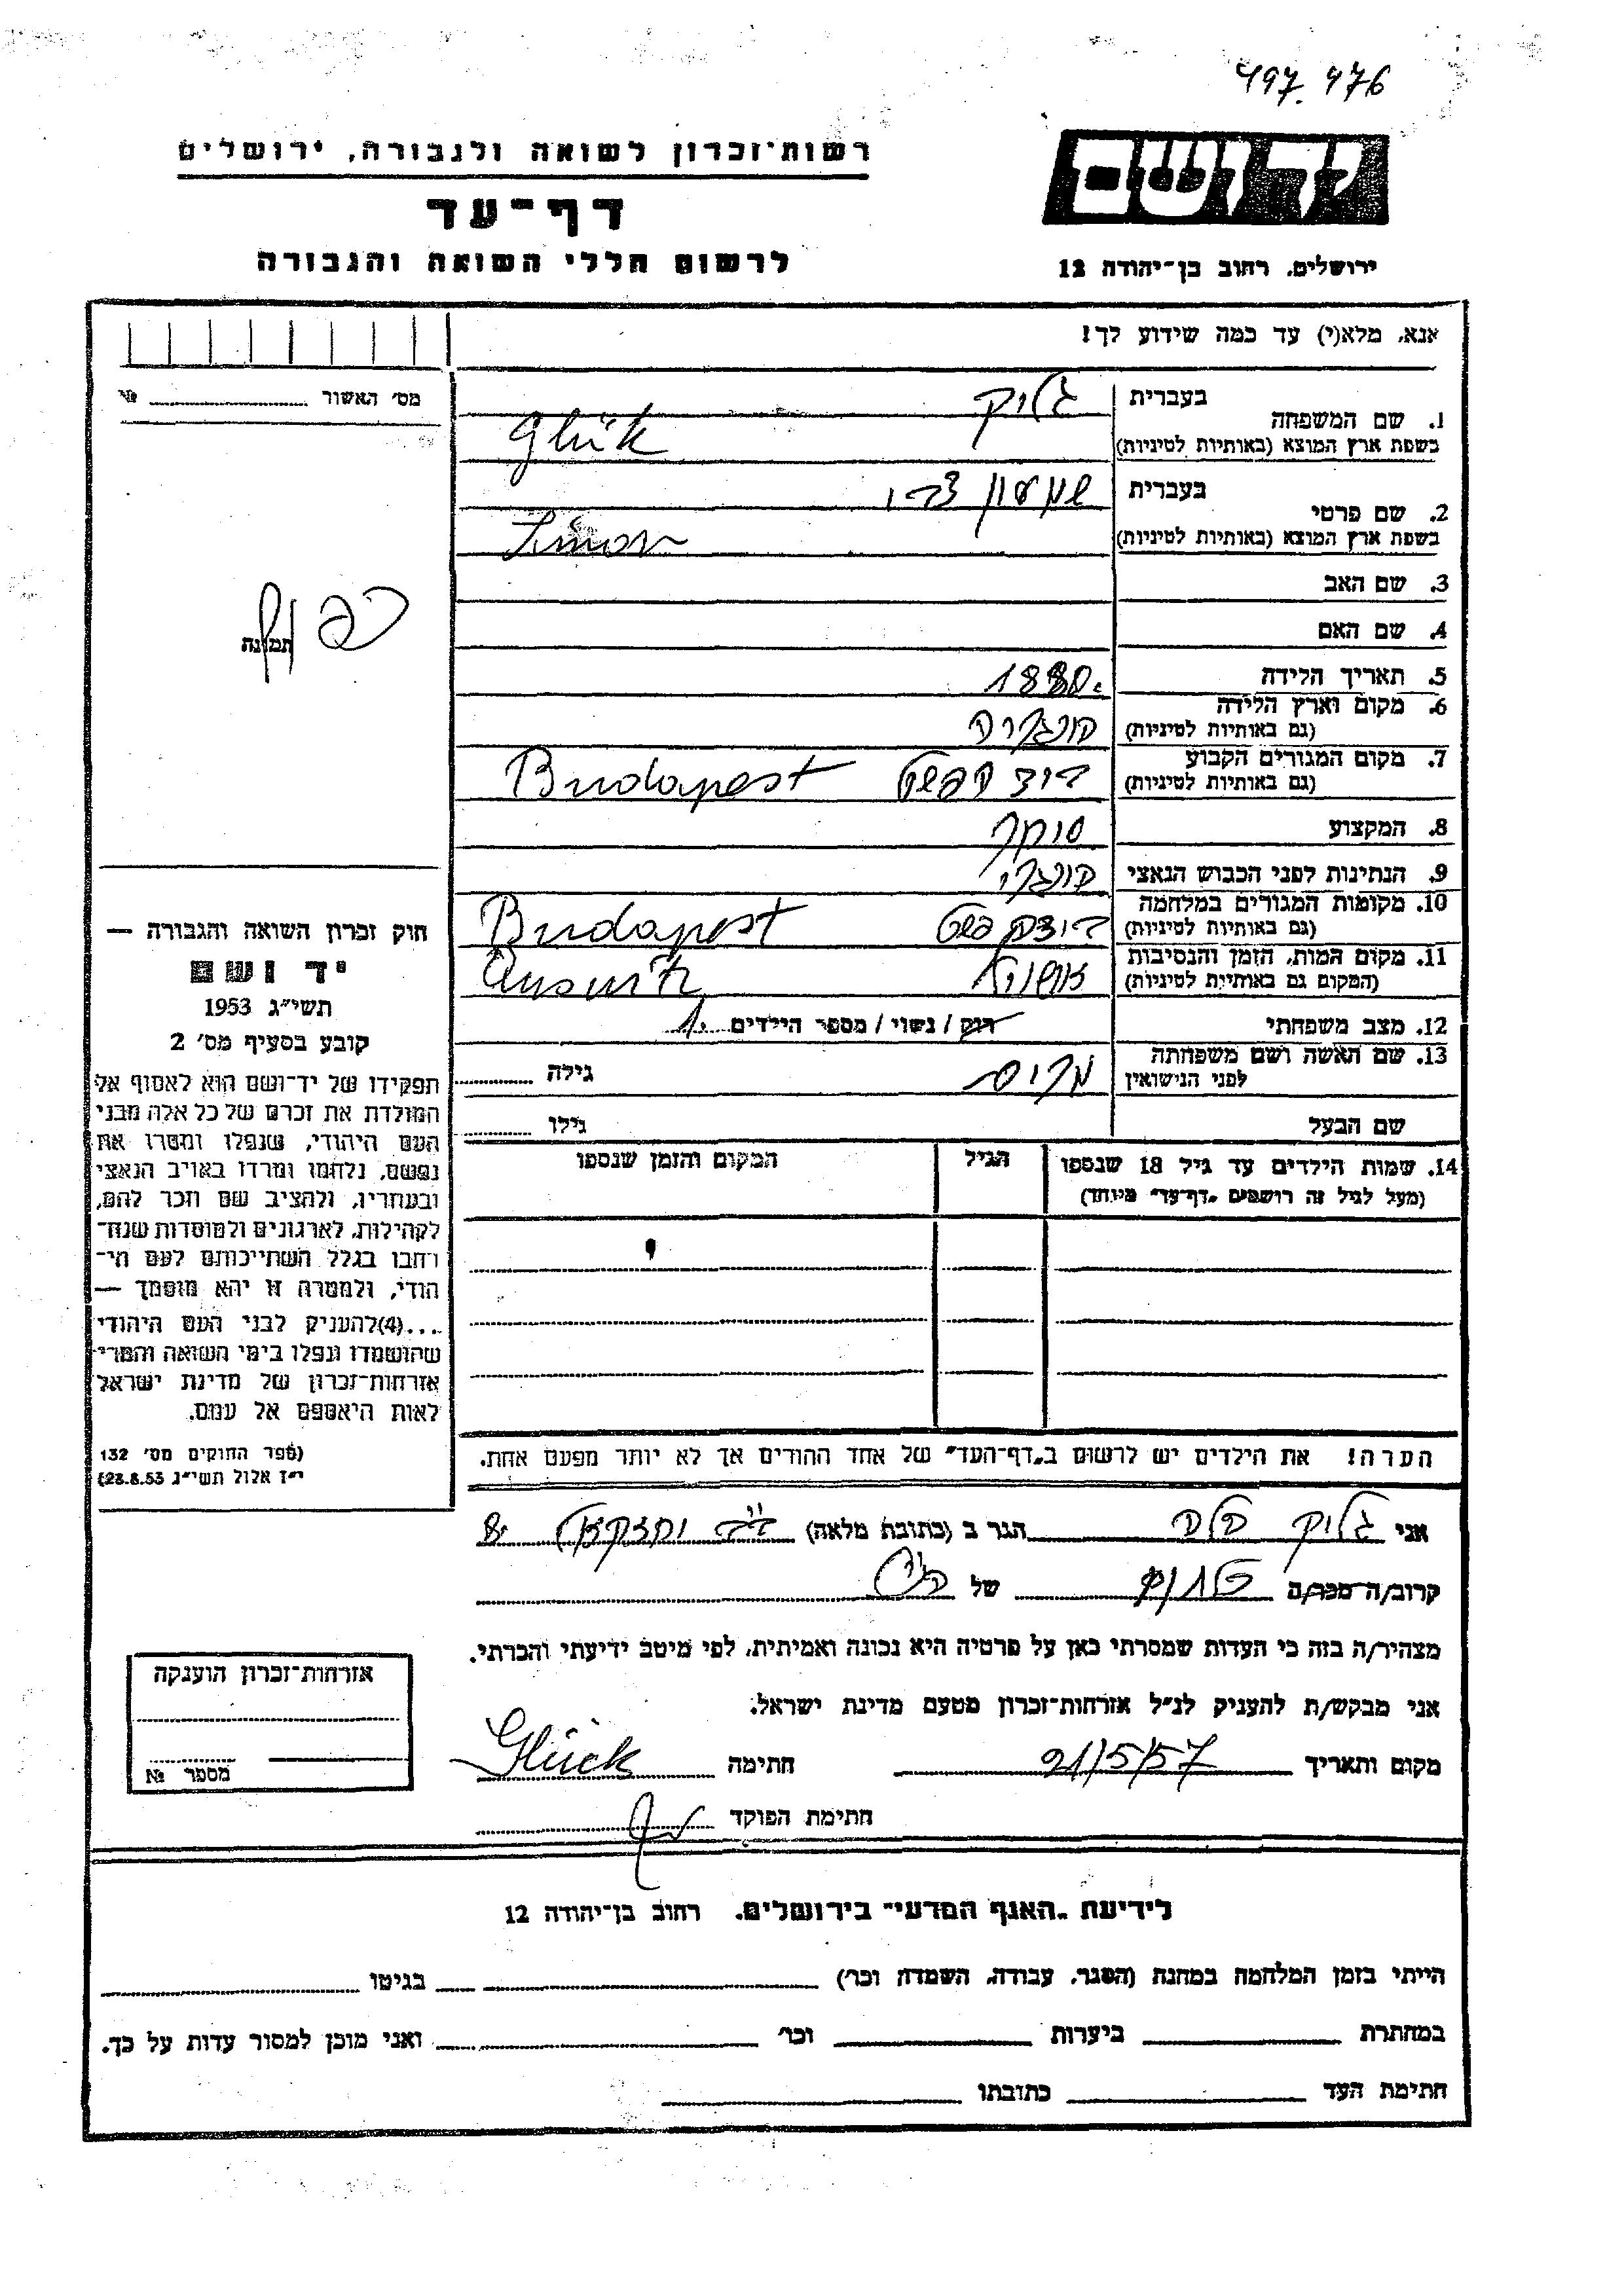 497.476
רשות־זכרון לשואה ולגבורה, ירושלים
דף־עד
לרשום חללי השואה והגבורה
יד ושם
ירושלים, רחוב בן־יהודה 12
אנא, מלא(י) עד כמה שידוע לך!
מס׳ האשור №
1. שם המשפחה
בעברית גליק
בשפת ארץ המוצא (באותיות לטיניות) Glük
2. שם פרטי
בעברית שמעון
בשפת ארץ המוצא (באותיות לטיניות) Simon
3. שם האב
4. שם האם
תמונה
5. תאריך הלידה 1880.
6. מקום וארץ הלידה
(גם באותיות לטיניות) הונגריה
7. מקום המגורים הקבוע
(גם באותיות לטיניות) Budapest
8. המקצוע סוחר
9. הנתינות לפני הכבוש הנאצי הונגרי
10. מקומות המגורים במלחמה
(גם באותיות לטיניות) Budapest
11. מקום המות, הזמן והנסיבות
(המקום גם באותיות לטיניות) אושויץ Ausvitz
12. מצב משפחתי רוק / נשוי / מספר הילדים 1.
13. שם האשה ושם משפחתה
לפני הנישואין גילה
שם הבעל גילו
14. שמות הילדים עד גיל 18 שנספו
(מעל לגיל זה רושמים „דף־עד״ מיוחד)
הגיל
המקום והזמן שנספו
הערה! את הילדים יש לרשום ב„דף־העד״ של אחד ההורים אך לא יותר מפעם אחת.
חוק זכרון השואה והגבורה —
יד ושם
תשי״ג 1953
קובע בסעיף מס׳ 2
תפקידו של יד־ושם הוא לאסוף אל
המולדת את זכרם של כל אלה מבני
העם היהודי, שנפלו ומסרו את
נפשם, נלחמו ומרדו באויב הנאצי
ובעוזריו, ולהציב שם וזכר להם,
לקהילות, לארגונים ולמוסדות שנח־
רבו בגלל השתייכותם לעם הי־
הודי, ולמטרה זו יהא מוסמך —
...(4)להעניק לבני העם היהודי
שהושמדו ונפלו בימי השואה והמרי
אזרחות־זכרון של מדינת ישראל
לאות היאספם אל עמם.
(ספר החוקים מס׳ 132
י״ז אלול תשי״ג 28.8.53)
אני גליק הגר ב (כתובת מלאה)
קרוב/ה מכר/ה של
מצהיר/ה בזה כי העדות שמסרתי כאן על פרטיה היא נכונה ואמיתית, לפי מיטב ידיעתי והכרתי.
אני מבקש/ת להעניק לנ״ל אזרחות־זכרון מטעם מדינת ישראל.
מקום ותאריך 21/5/57 חתימה Glück
חתימת הפוקד
אזרחות־זכרון הוענקה
מספר №
לידיעת „האגף המדעי״ בירושלים, רחוב בן־יהודה 12
הייתי בזמן המלחמה במחנה (הסגר, עבודה, השמדה וכר׳) בגיטו
במחתרת ביערות וכר׳ ואני מוכן למסור עדות על כך.
חתימת העד כתובתו